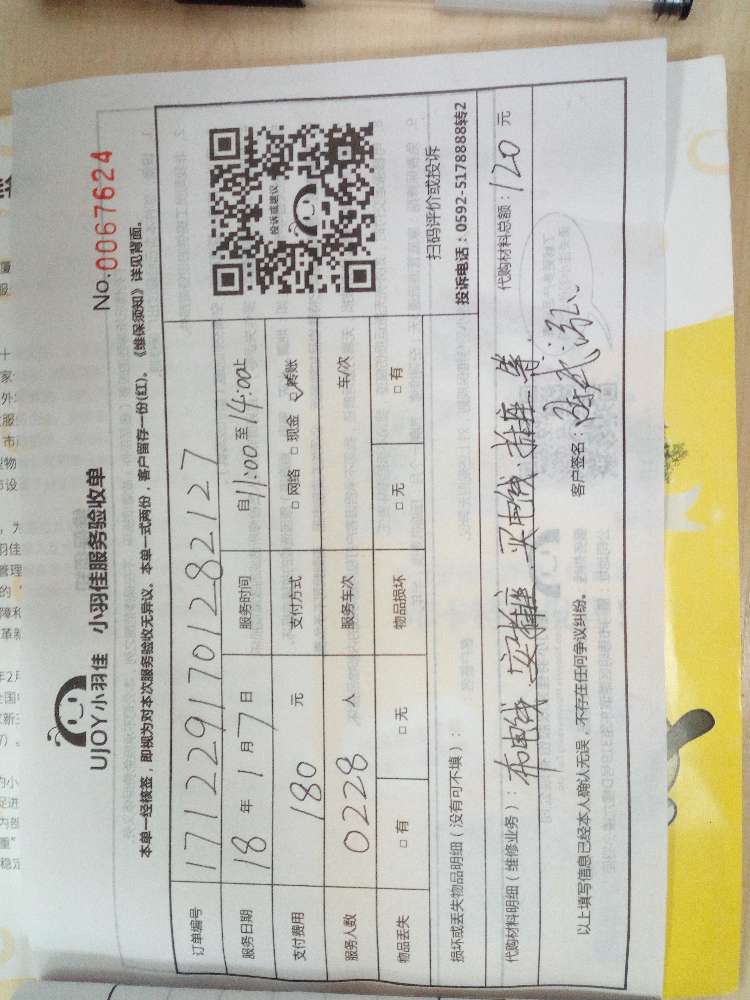 UJOY小羽佳 小羽佳服务验收单
No.0067624
本单一经核签，即视为对本次服务验收无异议。本单一式两份，客户留存一份(红)。《维保须知》详见背面。
订单编号 1712291701282127
服务日期 18年1月7日 服务时间 自11:00至14:00止
支付费用 180元 支付方式 □网络 □现金 ☑转账
服务人数 0228人 服务车次 车/次
物品丢失 □有 □无 物品损坏 □无 □有
投诉或建议
扫码评价或投诉
投诉电话：0592-5178888转2
损坏或丢失物品明细（没有可不填）：
代购材料明细（维修业务）：布电线 安插座 买电线 插座 等 代购材料总额：120元
以上填写信息已经本人确认无误，不存在任何争议纠纷。 客户签名：